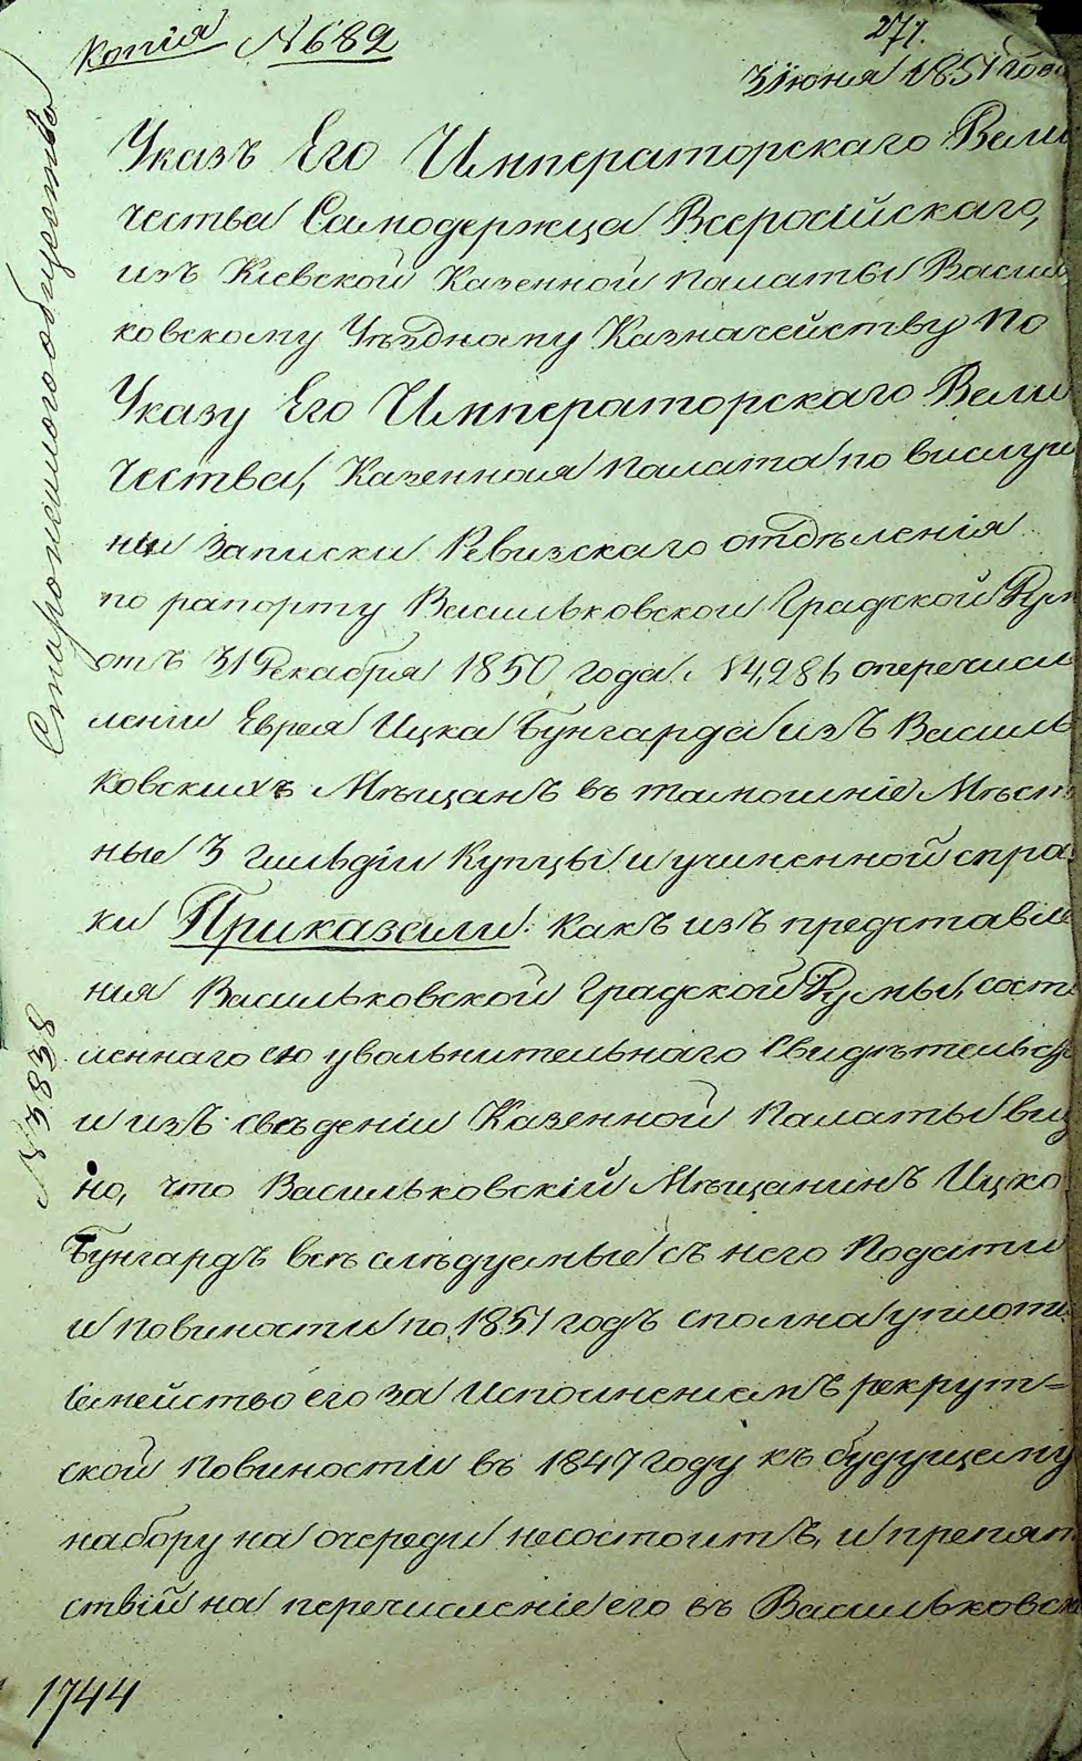 Копія № 682
271.
3 Іюня 1851 года
Указъ Его Императорскаго Вели
чества Самодержца Всеросійскаго,
изъ Кіевской Казенной Палаты Василь
ковскому Уѣздному Казначейству По
Указу Его Императорскаго Вели
чества, Казенная Палата по выслуша
ніи Записки Ревизскаго отдѣленія
по рапорту Васильковской Градской Думы
отъ 31 Декабря 1850 года № 4,286 о перечис
леніи Еврея Ицка Бунгарда изъ Василь
ковскихъ Мѣщанъ въ тамошніе Мѣст
ные 3 гильдіи Купцы и учиненной справ
ки Приказали: какъ изъ представле
нія Васильковской Градской Думы, состав
леннаго ею увольнительнаго Свидѣтельства
и изъ свѣденіи Казенной Палаты вид
но, что Васильковскій Мѣщанинъ Ицко
Бунгардъ всѣ слѣдуемые съ него Подати
и Повиности по 1851 годъ сполна уплотил
Семейство его за исполненіемъ рекрут=
ской Повиности въ 1847 году къ будущему
набору на очереди несостоитъ, и препят
ствій на перечисленіе его въ Васильковск
1744
№ 3838